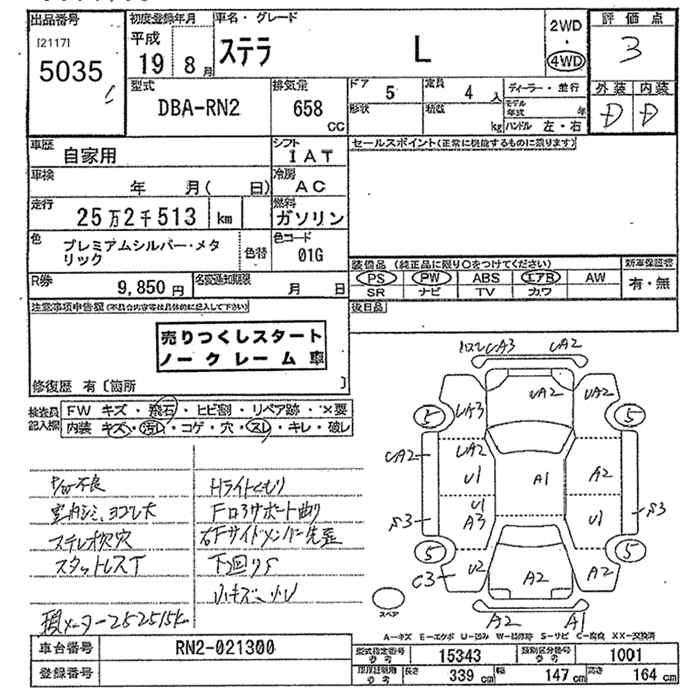 出品番号
[2117]
5035
初度登録年月
平成
19 8月
車名・グレード
ステラ L
2WD
・
4WD
評価点
3
外装 内装
D D
型式
DBA-RN2
排気量
658
cc
ドア
5
定員
4 人
形状
積載
kg
ディーラー・並行
モデル年式 年
ハンドル 左・右
車歴
自家用
シフト
IAT
車検
年 月( 日)
冷房
AC
走行
25万2千513 km
燃料
ガソリン
色
プレミアムシルバー・メタリック
色替
色コード
01G
R券
9,850円
名変通知期限
月 日
セールスポイント(正常に機能するものに限ります)
装備品 (純正品に限り○をつけてください)
PS PW ABS エアB AW
SR ナビ TV カワ
新車保証書
有・無
後日品
注意事項申告欄
売りつくしスタート
ノークレーム車
修復歴 有〔箇所 〕
検査員記入欄
FW キズ・飛石・ヒビ割・リペア跡・×要
内装 キズ・汚れ・コゲ・穴・スレ・キレ・破レ
室内シミ、ヨゴレ大
ステレオ欠穴
スタットレスT
Hライトくもり
Fロアサポート曲り
右Fサイドメンバー先歪
下回りS
小キズ、小U
損メーター252515K
UA3 UA2
UA3 UA2 UA2
5 5
UA2 UA2
U1 A1 A2
U1
S3 A3 U1 S3
5 5
C3 U2 A2 A2
A2 A1
スペア
A－キズ E－エクボ U－凹み W－補修跡 S－サビ C－腐食 XX－交換済
車台番号
RN2-021300
登録番号
型式指定番号
参考
15343
類別区分番号
参考
1001
長さ
339 cm
幅
147 cm
高さ
164 cm